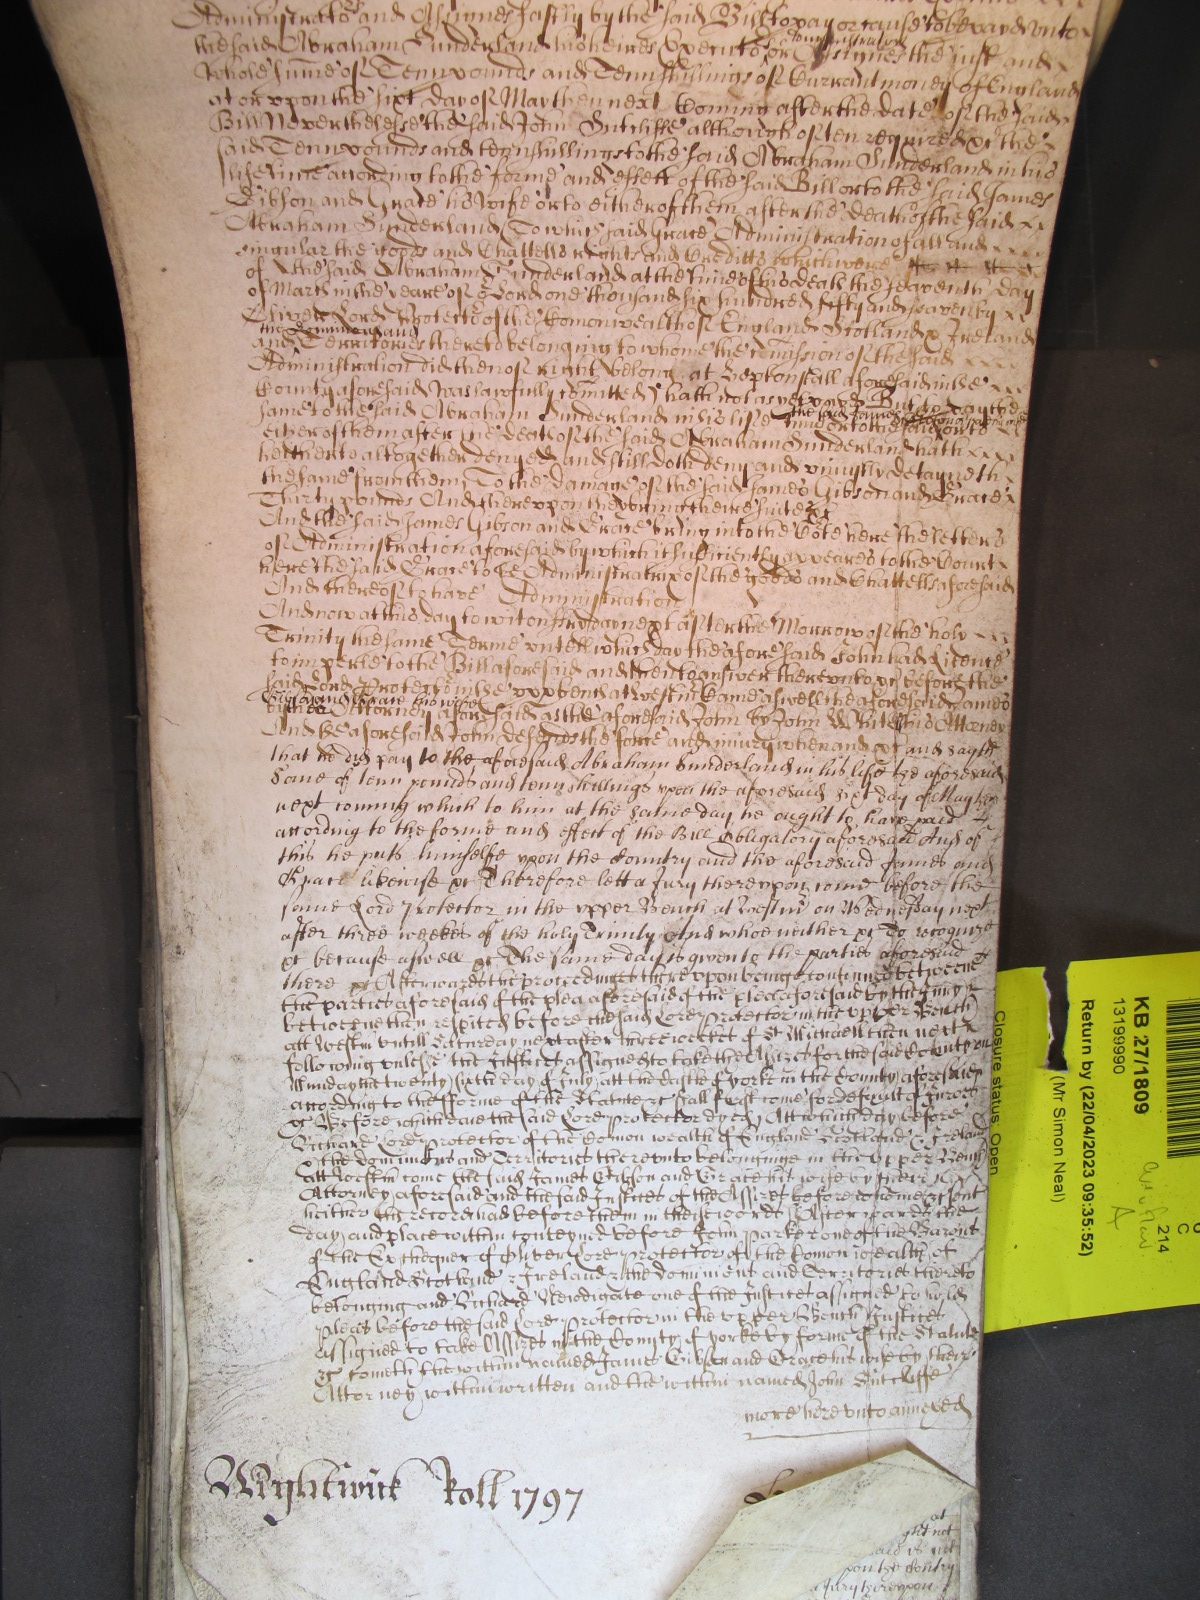 Administrators and Assignes fastly by the said Bill to pay or cause to be payd unto
the said Abraham Sunderland his heires Executors or Assignes the just and
administrators
whole summe of Tenn pounds and Tenn shillings of Currant money of England
at or upon the sixt day of May then next Coming after the date of the said
Bill Neverthelesse the said John Sutcliffe although often required &c the
said Tenn pounds and tenn shillings to the said Abraham Sunderland in his
life time according to the forme and effect of the said Bill or to the said James
Gibson and Grace his Wife or to either of them after the death of the said
Abraham Sunderland To which said Grace Administration of all and
singular the goods and Chattells rights and Creditts which were
of the said Abraham Sunderland at the time of his death the seaventh day
of March in the yeare of or Lord one thousand six hundred fifty and seaven by
Oliver Lord Protector of the Comonwealth of England Scotland & Ireland
the Dominions and
and Territories thereto belonging to whome the comission of the said
Administration did then of right belong at Heptonstall aforesaid in the
County aforesaid was lawfully comitted hath not as yet payd But to pay the
same to the said Abraham Sunderland in his life time or to the said James
either of them after the death of the said Abraham Sunderland hath
hitherto altogether denyed and still doth deny and unjustly detayneth
the same from them To the damage of the said James Gibson and Grace
Thirty pounds And thereupon they bring their suite &c
And the said James Gibson and Grace bring into the Cote here the letters
of Administration aforesaid by which it sufficiently appeares to the Court
here the said Grace to be Administratrix of the goods and Chattells aforesaid
And thereof to have Administration
And now at this day to wit on next after the Morrow of the holy
Trinity the same Terme untill which day the aforesaid John had Licence
to imperle to the Bill aforesaid and then to answer thereunto &c before the
said Lord Protector in the upp bench at Westm came aswell the aforesaid James
Gibson and Grace his wife
by their Attorney aforesaid as the aforesaid John by John White his Attorney
And the aforesaid John defends the force and injury when and &c and sayth
that he did pay to the aforesaid Abraham Sunderland in his life the aforesaid
some of tenn pounds and tenn shillings upon the aforesaid sixt day of May then
next coming which to him at the same day he ought to have paid
according to the forme and effect of the Bill Obligatory aforesaid And of
this he putts himselfe upon the Country and the aforesaid James and
Grace likewise &c Therefore lett a Jury thereupon come before the
same Lord Protector in the upper Bench at Westm on Wednesday next
after three weekes of the holy Trinity And whoe neither &c To recognize
&c because aswell &c The same day is given to the parties aforesaid
there &c Afterwards the proceedings thereupon being continued betweene
the parties aforesaid of the plea aforesaid by the Jury
betweene them respited before the said Lord Protector in the upper Bench
att Westm untill Saturday next after three weekes of St Michaell then next
following unlesse the Justices assigned to take the Assizes for the said County on
Munday the twenty sixth day of July att the Castle of Yorke in the County aforesaid
according to the fforme of the Statute &c shall first come for default of Jurors
&c Before which time the said Lord Protector dyed Att which day before
Richard Lord Protector of the Comon wealth of England Scotland & Ireland
& the dominions and Territories thereunto belonginge in the upper Bench
att Westm come the said James Gibson and Grace his wife by their
Attorney aforesaid and the said Justices of the Assizes before whome &c sent
hither the record had before them in these words Afterwards the
day and place within conteyned before John Parker one of the Barons
of the Exchequer of Oliver Lord Protector of the Comon wealth of
England Scotland & Ireland & the dominions and Territories thereto
belonging and Richard Newdigate one of the Justices assigned to hold
pleas before the said Lord Protector in the upper Bench Justices
assigned to take Assizes in the County of Yorke by forme of the Statute
&c cometh the within named James Gibson and Grace his wife by their
Attorney within written and the within named John Sutcliffe
more hereunto annexed
Wightwick Roll 1797
KB 27/1809
13199990
Return by (22/04/2023 09:35:52)
(Mr Simon Neal)
Closure status: Open
214
A
at
ght not
aid is not
pon the Contry
a Jury thereupon